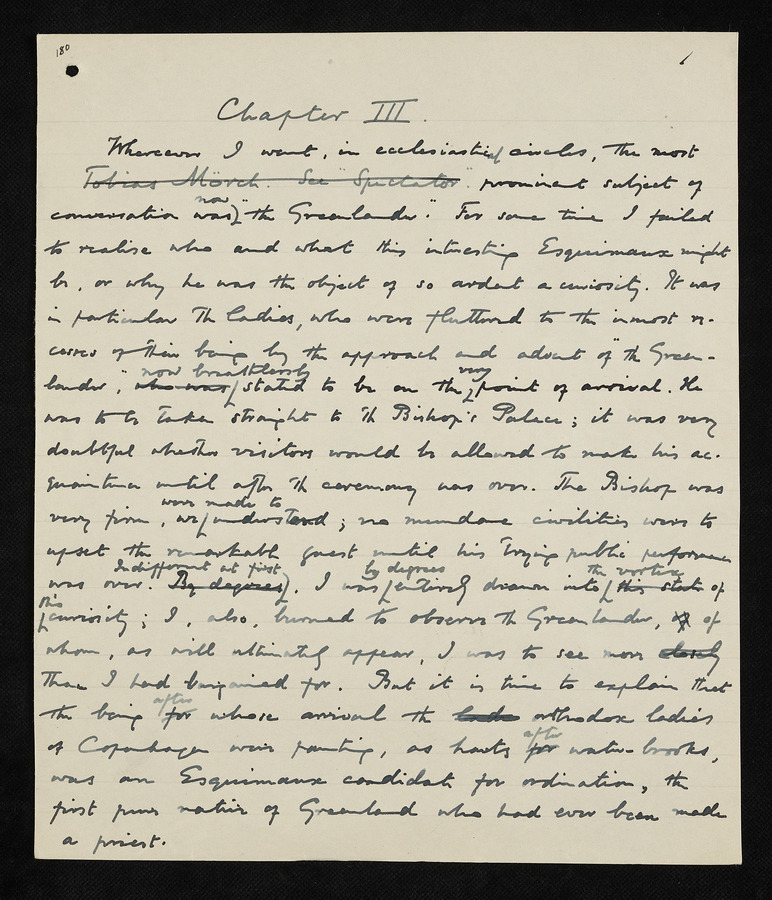 180
1
Chapter III.
Whereever I went, in ecclesiastical circles, the most
Tobias Mörch. See "Spectator". prominent subject of
now
conversation was "the Greenlander." For some time I failed
to realise who and what this interesting Esquimaux might
be, or why he was the object of so ardent a curiosity. It was
in particular the ladies, who were fluttered to the inmost re-
cesses of their being by the approach and advent of "the Green-
now breathlessly very
lander," who was stated to be on the point of arrival. He
was to be taken straight to the Bishop's Palace; it was very
doubtful whether visitors would be allowed to make his ac-
quaintance until after the ceremony was over. The Bishop was
were made to
very firm, we understand; no mundane civilities were to
upset the remarkable guest until his trying public performance
Indifferent at first by degrees the vortex
was over. By degrees, I was entirely drawn into this state of
this
curiosity; I, also, burned to observe the Greenlander, of of
whom, as will ultimately appear, I was to see more closely
than I had bargained for. But it is time to explain that
after
the being for whose arrival the lade orthodox ladies
after
of Copenhagen were panting, as harts for water-brooks,
was an Esquimaux candidate for ordination, the
first pure native of Greenland who had ever been made
a priest.